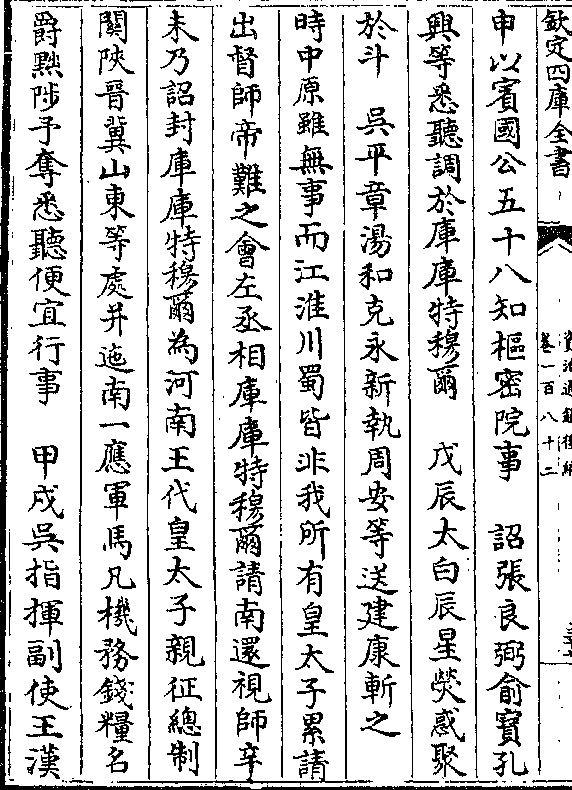 欽定四庫全書
資治通鑑後編
卷一百八十二
申以賓國公五十八知樞密院事　詔張良弼俞寶孔
興等悉聽調於庫庫特穆爾　戊辰太白辰星熒惑聚
於斗　吳平章湯和克永新執周安等送建康斬之
時中原雖無事而江淮川蜀皆非我所有皇太子累請
出督師帝難之會左丞相庫庫特穆爾請南還視師辛
未乃詔封庫庫特穆爾為河南王代皇太子親征總制
關陝晉冀山東等處并迤南一應軍馬凡機務錢糧名
爵黜陟予奪悉聽便宜行事　甲戌吳指揮副使王漢